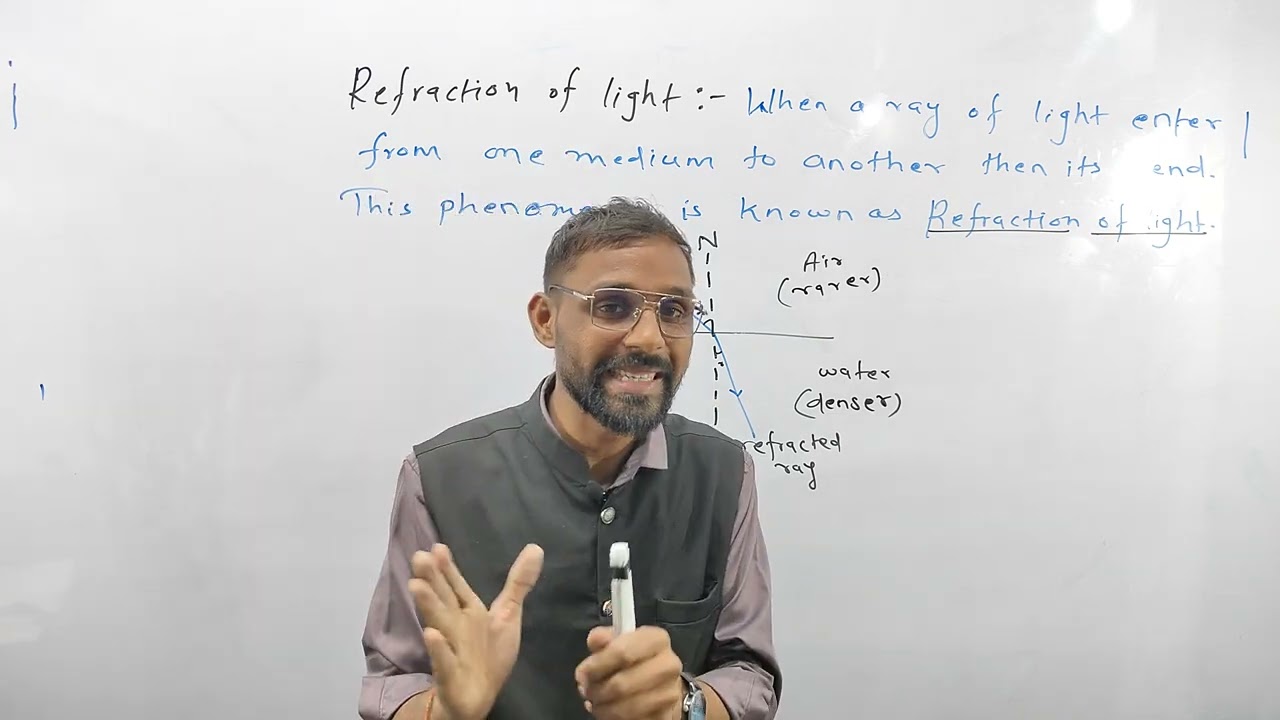 Refraction of light :- When a ray of light enter
from one medium to another then its end.
This phenome is known as Refraction of ight.
N
Air
(rarer)
water
(denser)
refracted
ray